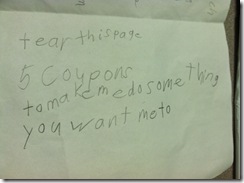 tear this page
5 Coupons
to make me do some thing
you want me to